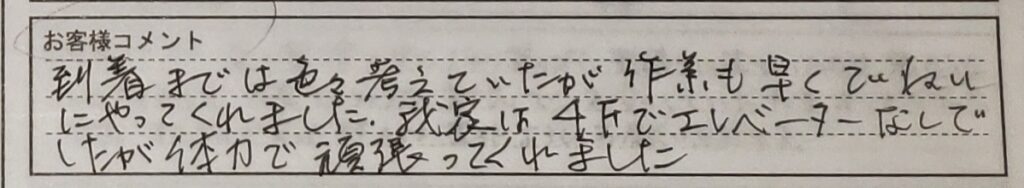 お客様コメント
到着までは色々考えていたが作業も早くていねい
にやってくれました。我家は4Fでエレベーターなしで
したが体力で頑張ってくれました